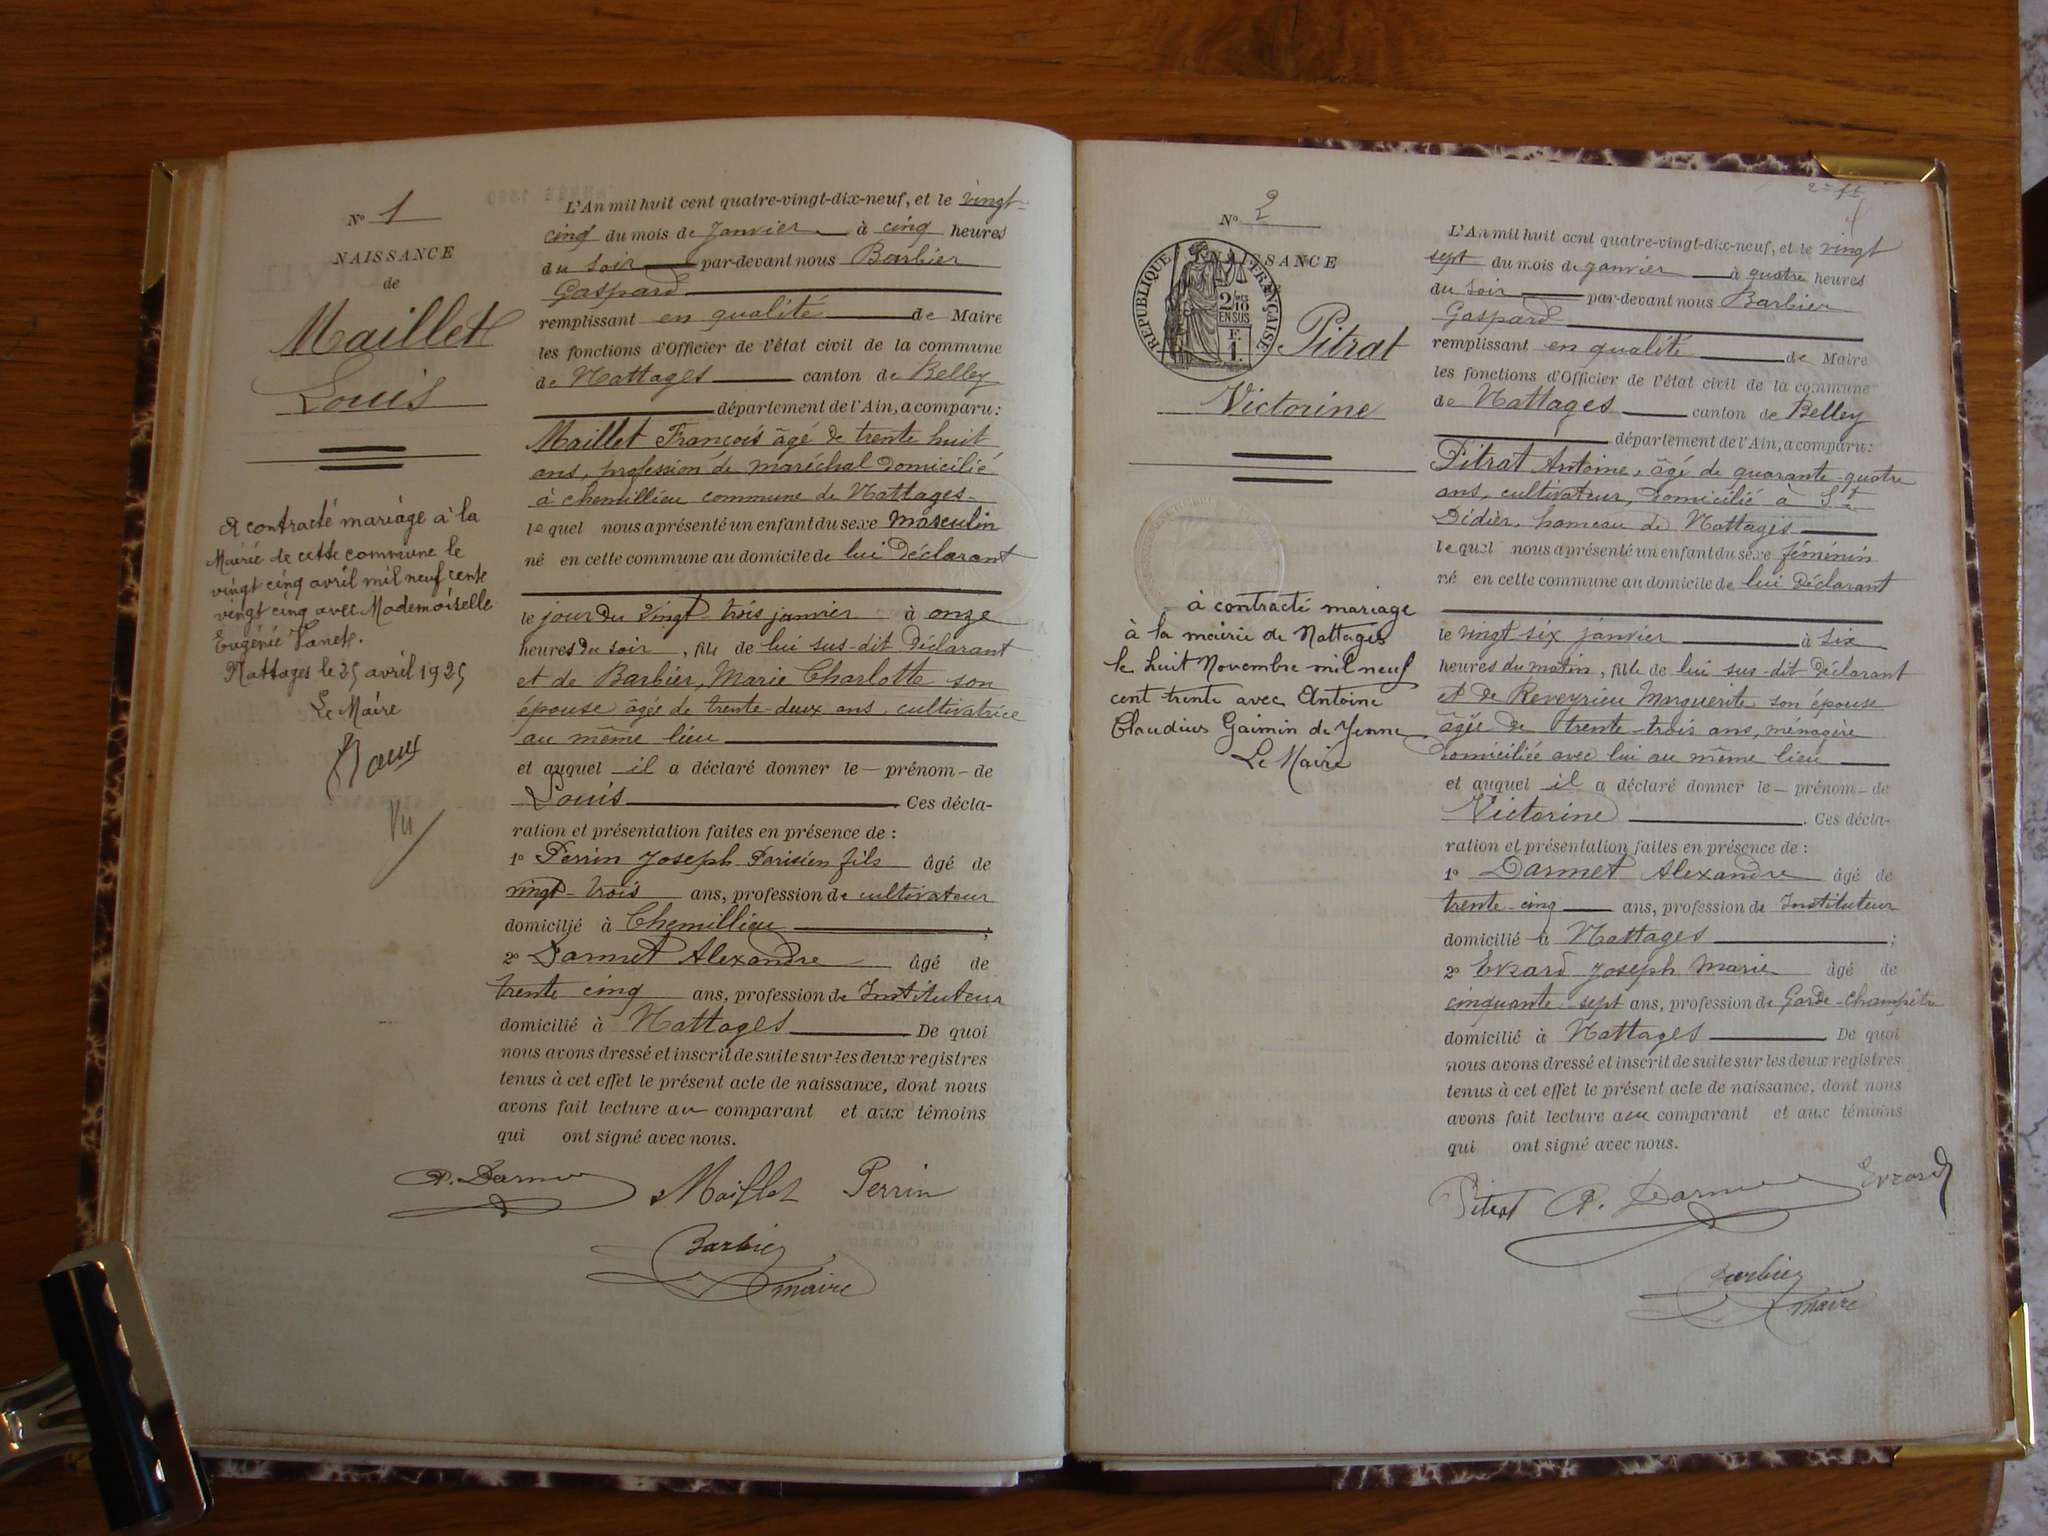 N° 1
NAISSANCE
de
Maillet
Louis
A contracté mariage à la
Mairie de cette commune le
vingt cinq avril mil neuf cent
vingt cinq avec Mademoiselle
Eugénie
Nattages le 25 avril 1925
Le Maire
Vu
L'An mil huit cent quatre-vingt-dix-neuf, et le vingt-
cinq du mois de Janvier à cinq heures
du soir par-devant nous Barbier
Gaspard
remplissant en qualité de Maire
les fonctions d'Officier de l'état civil de la commune
de Nattages canton de Belley
département de l'Ain, a comparu :
Maillet François âgé de trente huit
ans, profession de maréchal domicilié
à Chemillieu commune de Nattages-
lequel nous a présenté un enfant du sexe masculin
né en cette commune au domicile de lui déclarant
le jour du vingt-trois janvier à onze
heures du soir, fils de lui sus-dit déclarant
et de Barbier, Marie Charlotte son
épouse âgée de trente-deux ans, cultivatrice
au même lieu
et auquel il a déclaré donner le – prénom – de
Louis Ces décla-
ration et présentation faites en présence de :
1° Perrin Joseph Parisien fils âgé de
vingt-trois ans, profession de cultivateur
domicilié à Chemillieu ;
2° Darmet Alexandre âgé de
trente cinq ans, profession de Instituteur
domicilié à Nattages De quoi
nous avons dressé et inscrit de suite sur les deux registres
tenus à cet effet le présent acte de naissance, dont nous
avons fait lecture au comparant et aux témoins
qui ont signé avec nous.
Maillet Perrin
Barbier
maire
2e ft
N° 2
NAISSANCE
RÉPUBLIQUE FRANÇAISE
2/10
EN SUS
F.
1
Pitrat
Victorine
à contracté mariage
à la mairie de Nattages
le huit Novembre mil neuf
cent trente avec Antoine
Claudius Gaimin de Yenne
Le Maire
L'An mil huit cent quatre-vingt-dix-neuf, et le vingt
sept du mois de janvier à quatre heures
du soir par-devant nous Barbier
Gaspard
remplissant en qualité de Maire
les fonctions d'Officier de l'état civil de la commune
de Nattages canton de Belley
département de l'Ain, a comparu :
Pitrat Antoine, âgé de quarante-quatre
ans, cultivateur, domicilié à St
Didier, hameau de Nattages
lequel nous a présenté un enfant du sexe féminin
né en cette commune au domicile de lui déclarant
le vingt six janvier à six
heures du matin, fille de lui sus-dit déclarant
et de Reveyrieu Marguerite son épouse
âgée de trente-trois ans, ménagère
domiciliée avec lui au même lieu
et auquel il a déclaré donner le – prénom – de
Victorine . Ces décla-
ration et présentation faites en présence de :
1° Darmet Alexandre âgé de
trente-cinq ans, profession de Instituteur
domicilié à Nattages ;
2° Evrard Joseph Marie âgé de
cinquante-sept ans, profession de Garde-champêtre
domicilié à Nattages De quoi
nous avons dressé et inscrit de suite sur les deux registres
tenus à cet effet le présent acte de naissance, dont nous
avons fait lecture au comparant et aux témoins
qui ont signé avec nous.
Pitrat Evrard
Barbier
maire